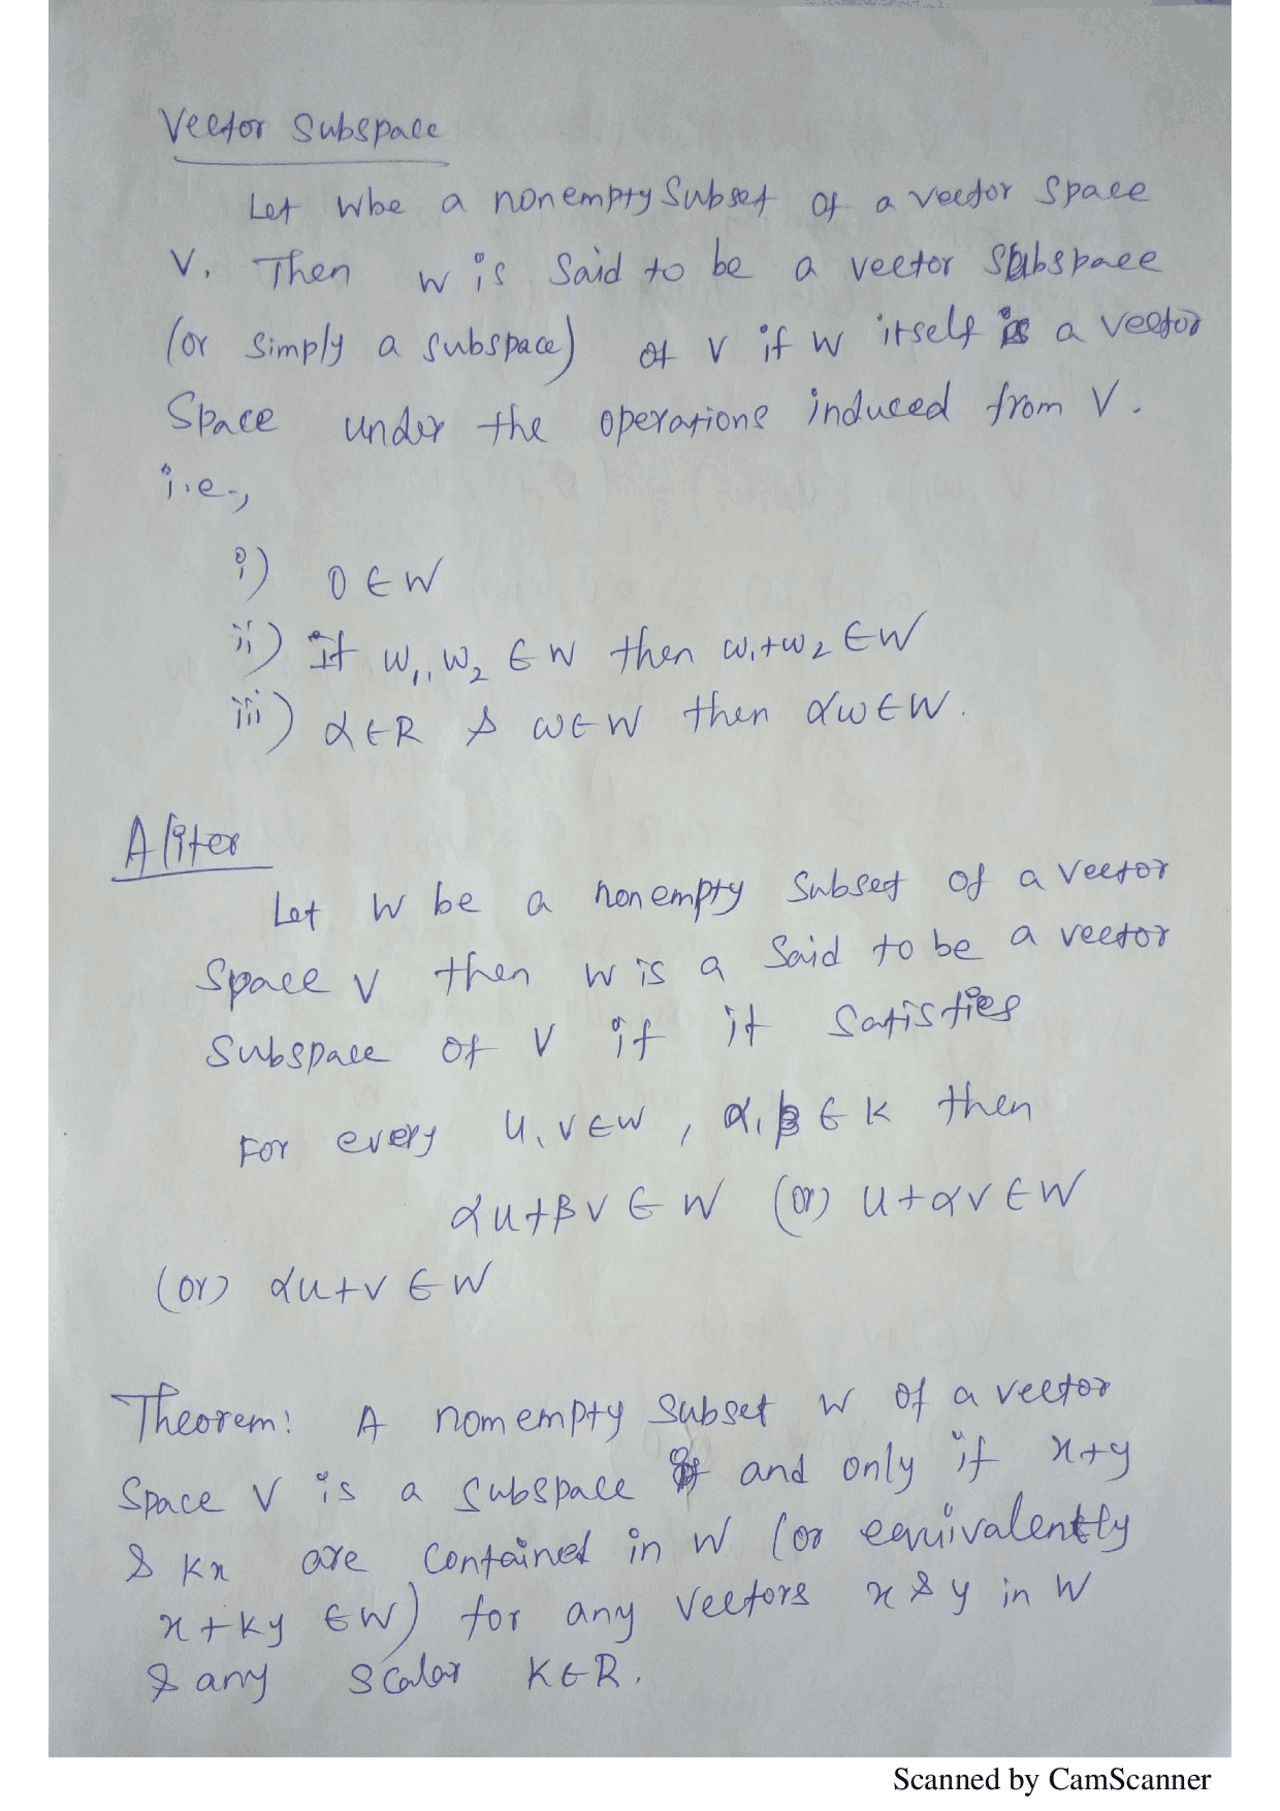 Vector Subspace
Let W be a nonempty Subset of a vector Space
V. Then W is Said to be a vector Subspace
(or simply a subspace) of V if W itself is a vector
Space under the operations induced from V.
i.e.,
i) 0 ∈ W
ii) If w₁, w₂ ∈ W then w₁+w₂ ∈ W
iii) α ∈ R & w ∈ W then αw ∈ W.
Aliter
Let W be a nonempty Subset of a vector
Space V then W is a Said to be a vector
Subspace of V if it Satisfies
For every u, v ∈ W, α, β ∈ K then
αu+βv ∈ W (or) u+αv ∈ W
(or) αu+v ∈ W
Theorem: A nomempty Subset W of a vector
Space V is a subspace if and only if x+y
& kx are contained in W (or equivalently
x+ky ∈ W) for any vectors x & y in W
& any scalar K ∈ R.
Scanned by CamScanner